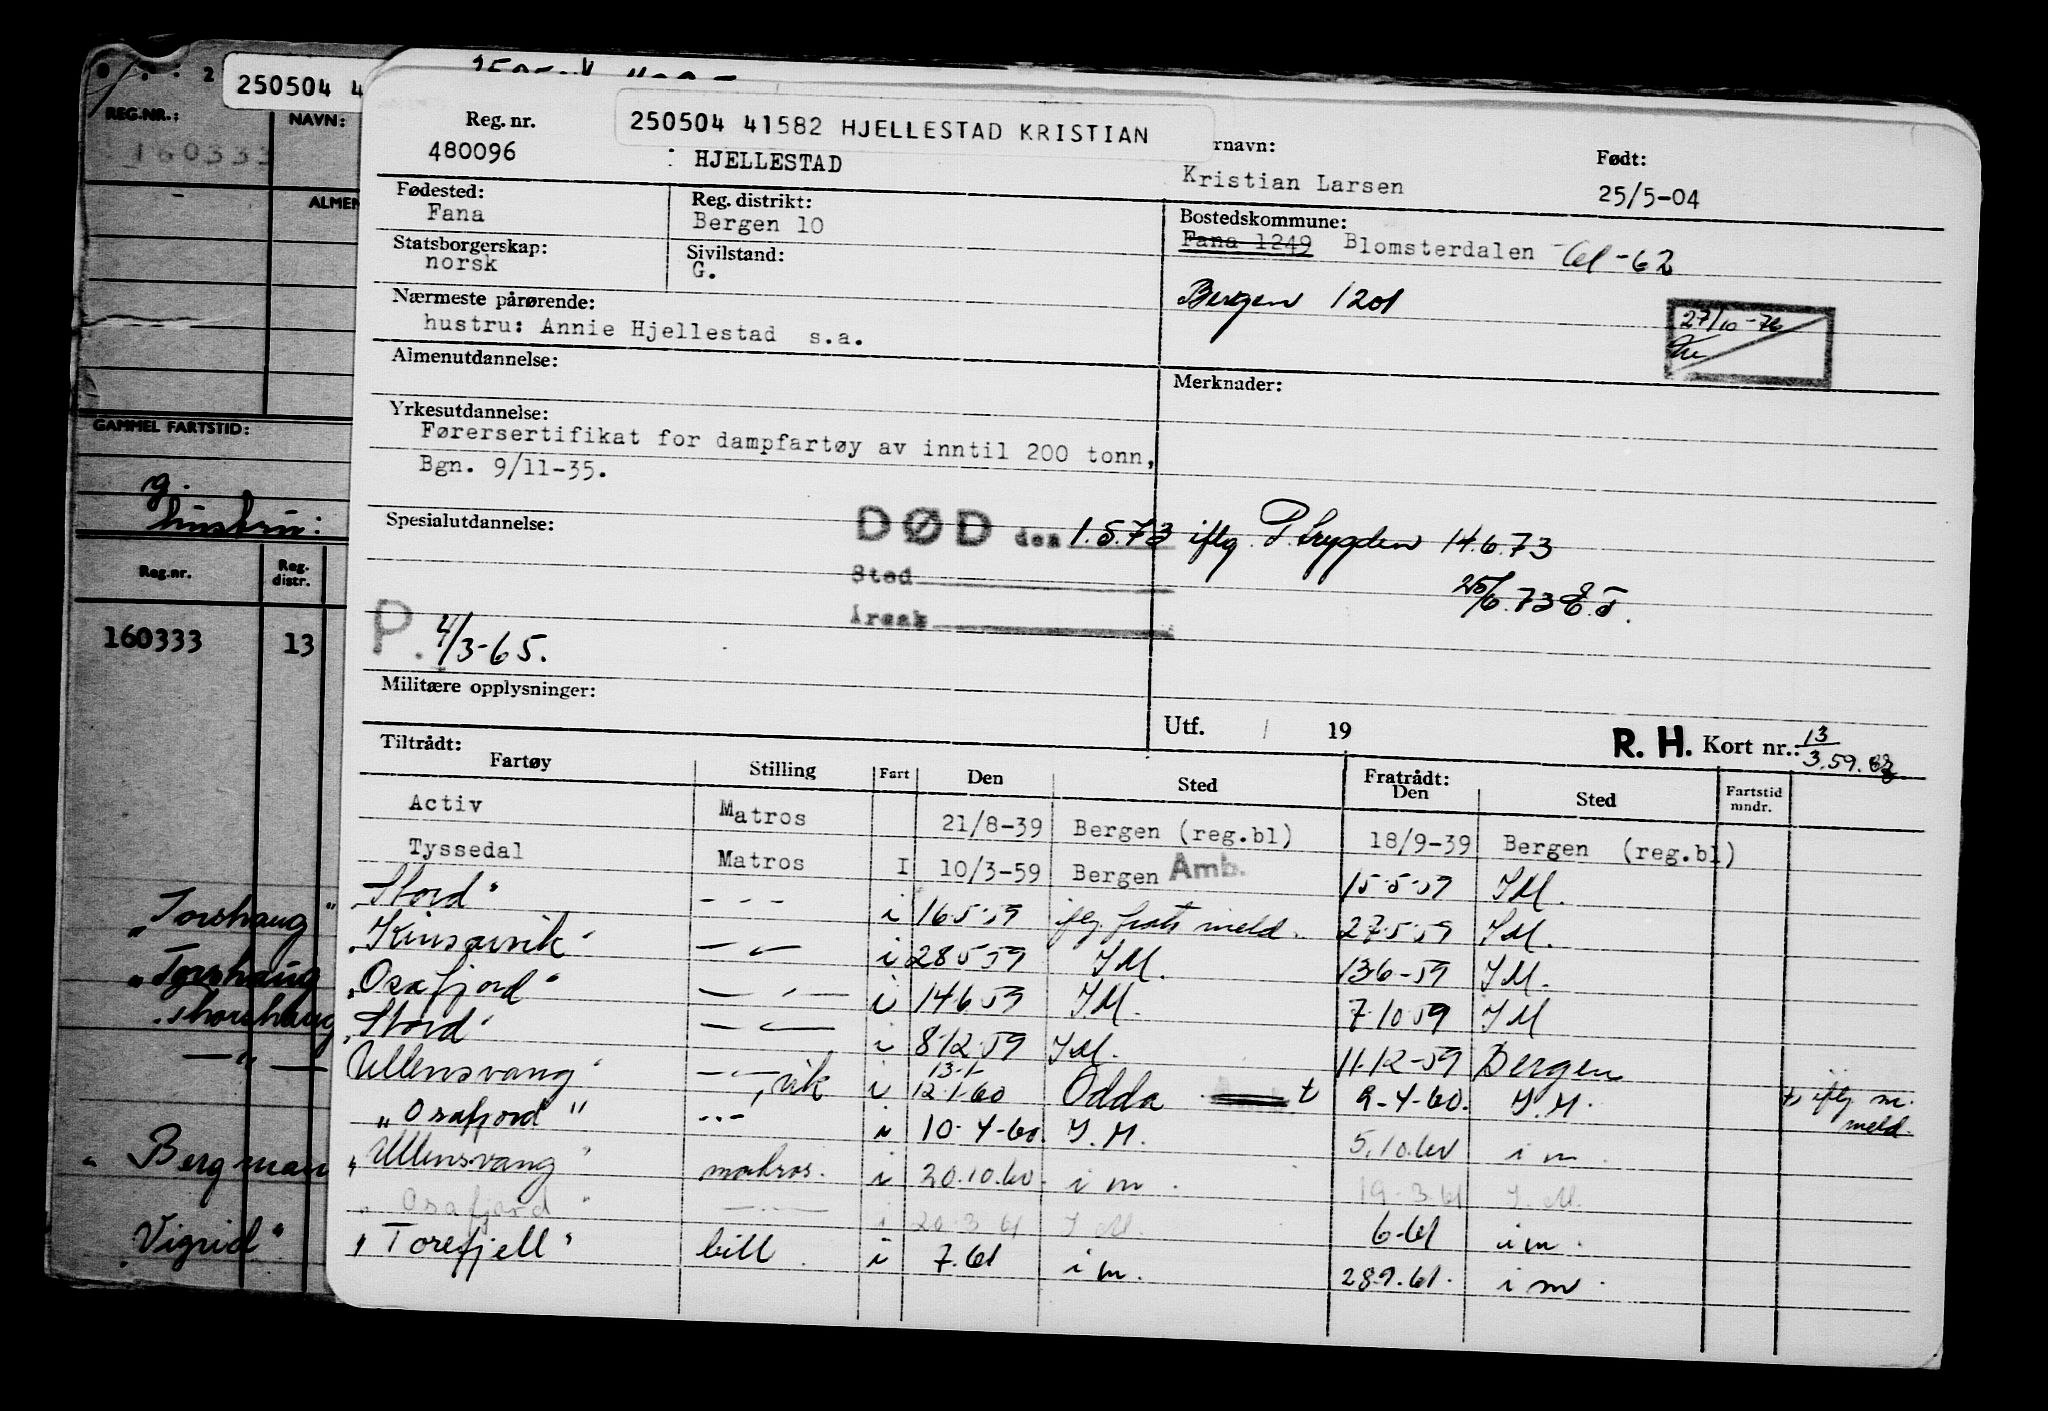 250504 4
REG.NR.:
NAVN:
160333
ALMEN
GAMMEL FARTSTID:
g.
hustru:
Reg.nr.
Reg. distr.
160333 13
"Torshaug"
"Torshaug
"Thorshaug
—"—
"Bergman
"Vigrid"
250504 41582 HJELLESTAD KRISTIAN
Reg. nr.
480096
: HJELLESTAD
rnavn:
Kristian Larsen
Født:
25/5-04
Fødested:
Fana
Reg. distrikt:
Bergen 10
Bostedskommune:
Fana 1249 Blomsterdalen -62
Statsborgerskap:
norsk
Sivilstand:
G.
Bergen 1201
27/10-76
Nærmeste pårørende:
hustru: Annie Hjellestad s.a.
Almenutdannelse:
Merknader:
Yrkesutdannelse:
Førersertifikat for dampfartøy av inntil 200 tonn,
Bgn. 9/11-35.
Spesialutdannelse:
DØD den 1.5.73 iflg. P.trygden 14.6.73
Sted
25/6.73 E.T.
Årsak
P. 4/3-65.
Militære opplysninger:
Utf. / 19
R. H. Kort nr.: 13/3.59.
Tiltrådt:
Fratrådt:
Fartøy Stilling Fart Den Sted Den Sted Fartstid mndr.
Activ Matros 21/8-39 Bergen (reg.bl) 18/9-39 Bergen (reg.bl)
Tyssedal Matros I 10/3-59 Bergen Amb. 15-5-59 I.M.
"Stord" -"- i 16.5.59 iflg frats meld. 27.5.59 I.M.
"Kinsarvik" -"- i 28.5.59 I.M. 13.6-59 I.M.
"Osafjord" -"- i 14.6.59 I.M. 7.10.59 I M
"Stord" -"- i 8.12.59 I.M. 11.12-59 Bergen
13.1
Ullensvang" -"-, vik i 12.1.60 Odda t 9-4-60. I.M. t, iflg m. meld.
"Osafjord" -"- i 10-4-60. I.M. 5.10.60 i m.
"Ullensvang" matros. i 20.10.60. i m. 19.3.61 I.M.
"Osafjord" -"- i 20.3.61 I.M. 6-61 i m.
"Torefjell" bill i 7.61 i m. 28.9.61. i m.